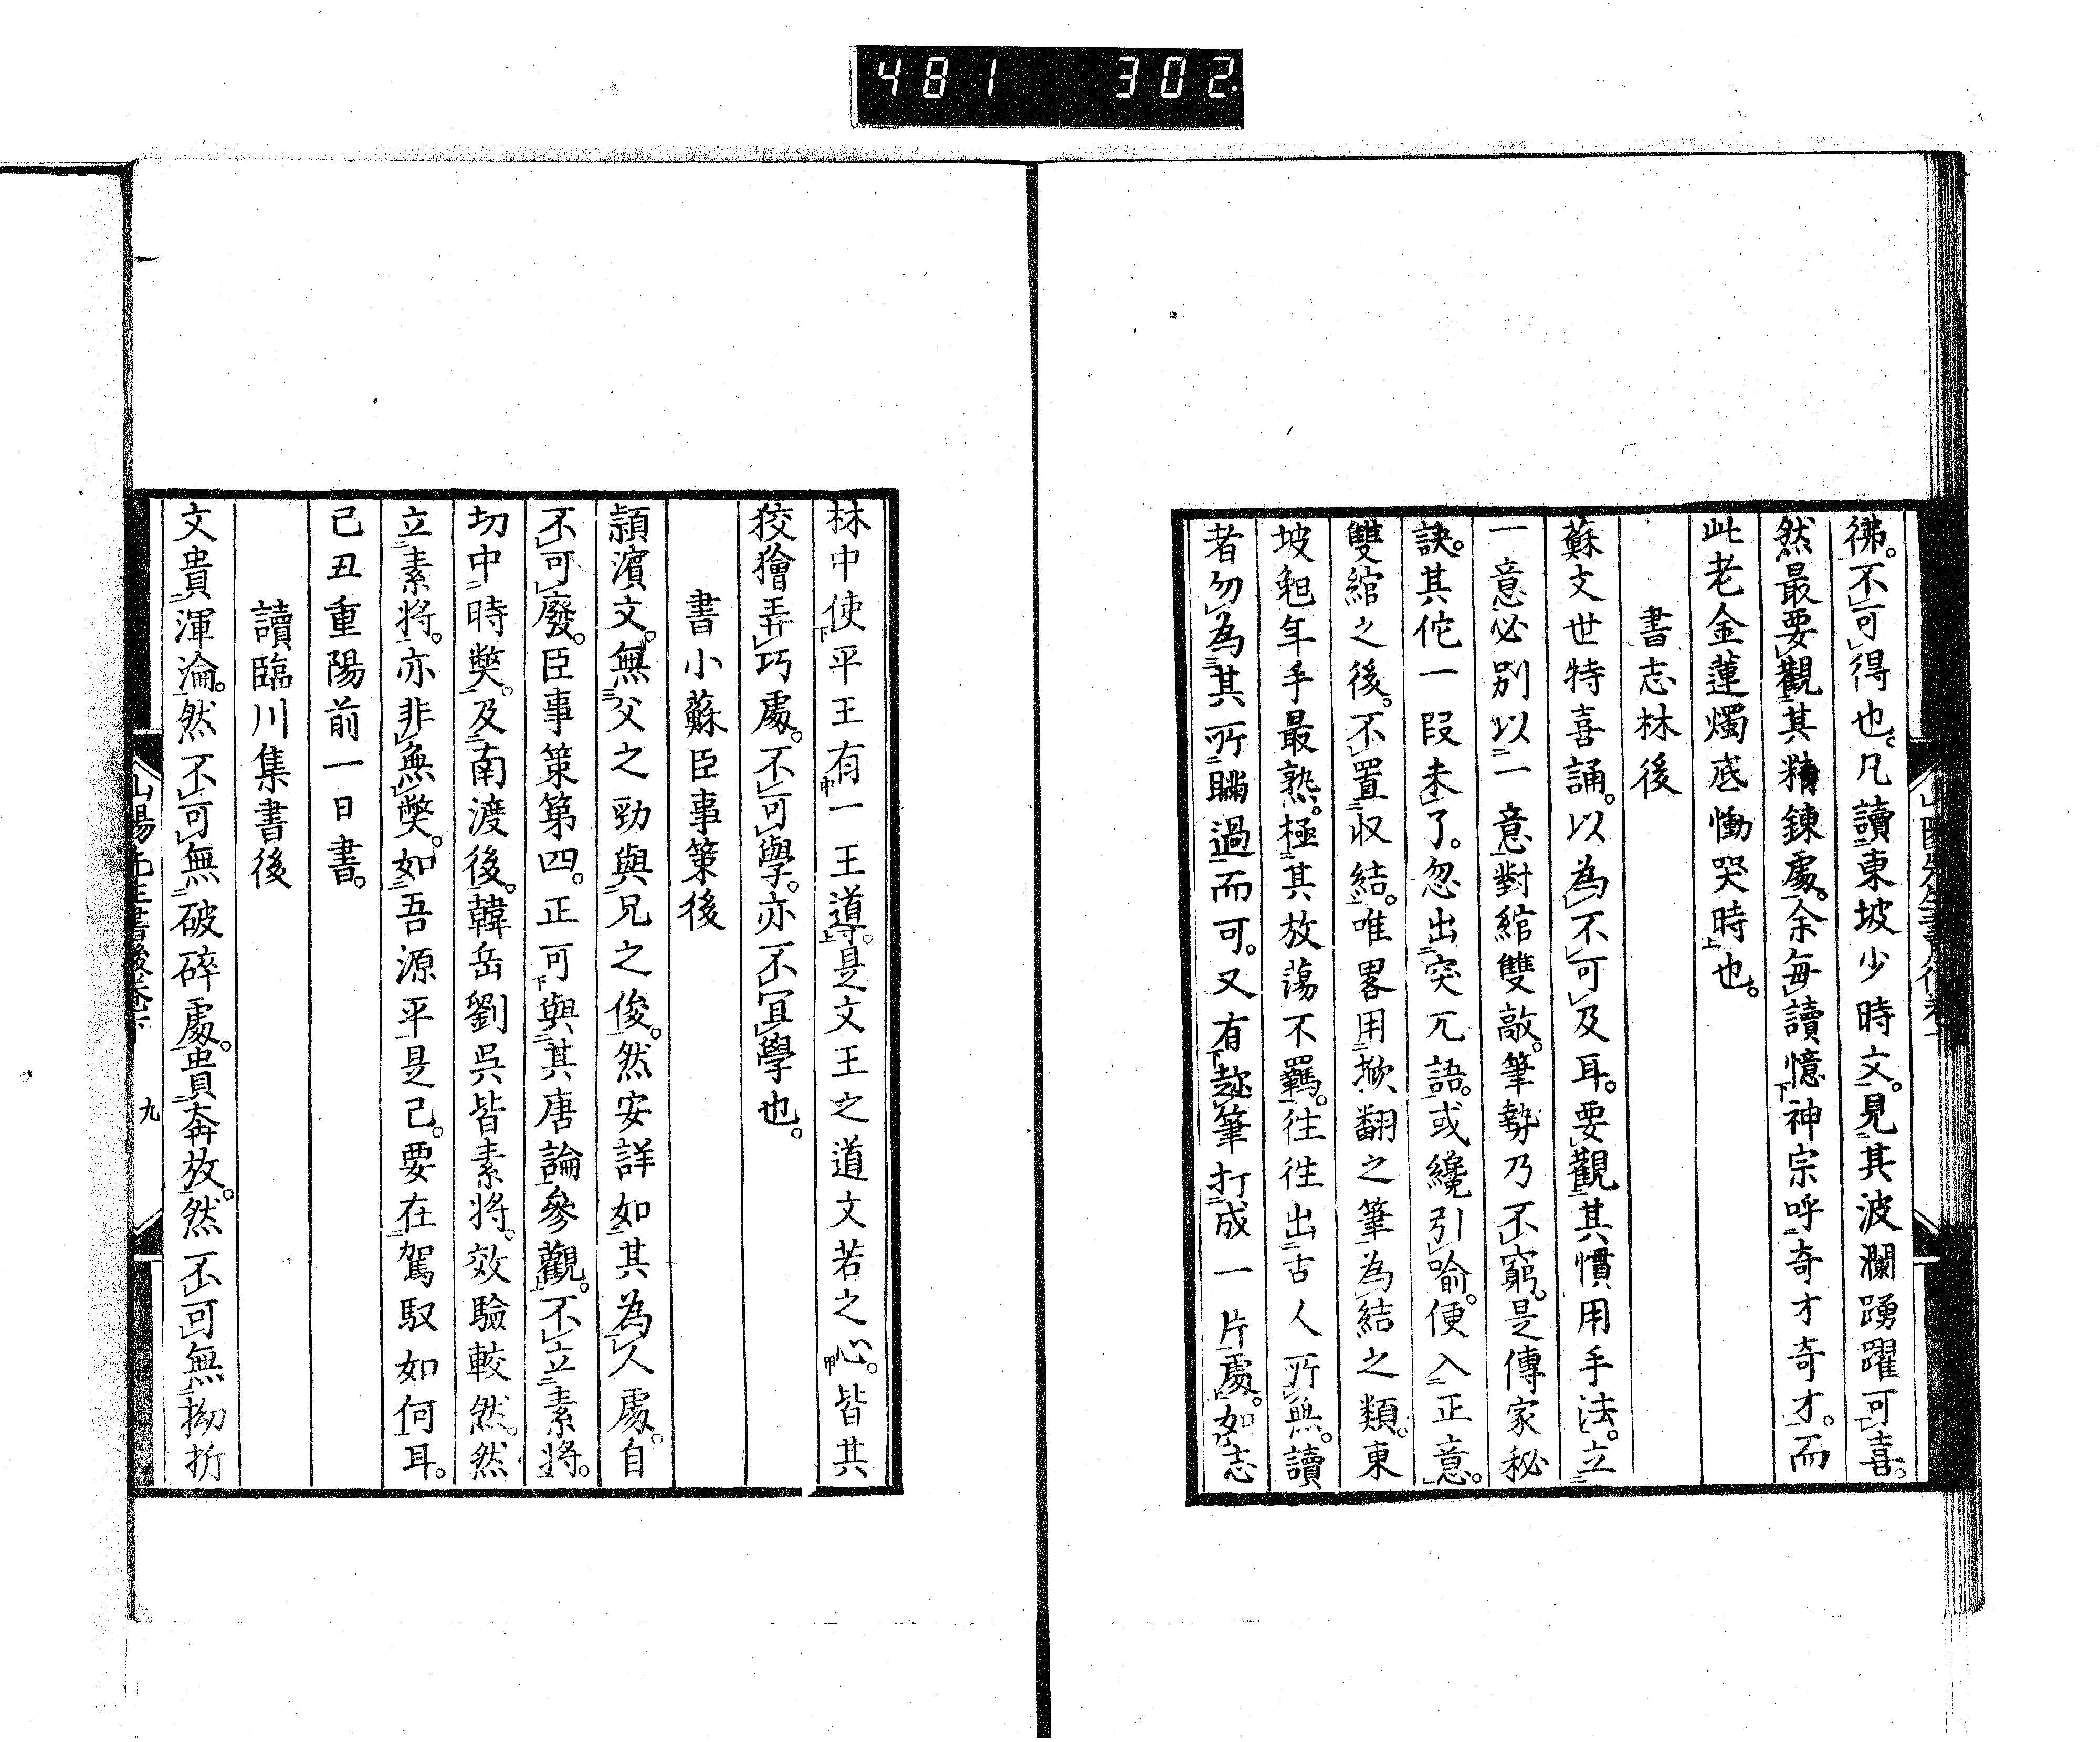 481 302
彿。不可得也。凡讀東坡少時文。見其波瀾踴躍可喜。
然最要觀其精鍊處。余每讀憶神宗呼奇才奇才。而
此老金蓮燭底慟哭時也。
書志林後
蘇文世特喜誦。以為不可及耳。要觀其慣用手法。立
一意必別以一意對綰雙敲。筆勢乃不窮。是傳家秘
訣。其佗一段未了。忽出突兀語。或纔引喩。便入正意。
雙綰之後。不置収結。唯畧用掀翻之筆為結之類。東
坡匏年手最熟。極其放蕩不羈。徃徃出古人所無。讀
者勿為其所瞞過而可。又有趂筆打成一片處。如志
林中使平王有一王導。是文王之道文若之心。皆其
狡獪弄巧處。不可學。亦不冝學也。
書小蘇臣事策後
頴濱文。無父之勁與兄之俊。然安詳如其為人處。自
不可廢。臣事策第四。正可與其唐論參觀。不立素將。
切中時獘。及南渡後。韓岳劉呉皆素將。效驗較然。然
立素將。亦非無獘。如吾源平是己。要在駕馭如何耳。
己丑重陽前一日書。
讀臨川集書後
文貴渾淪。然不可無破碎處。貴奔放。然不可無拗折
山陽先生書後卷下 九